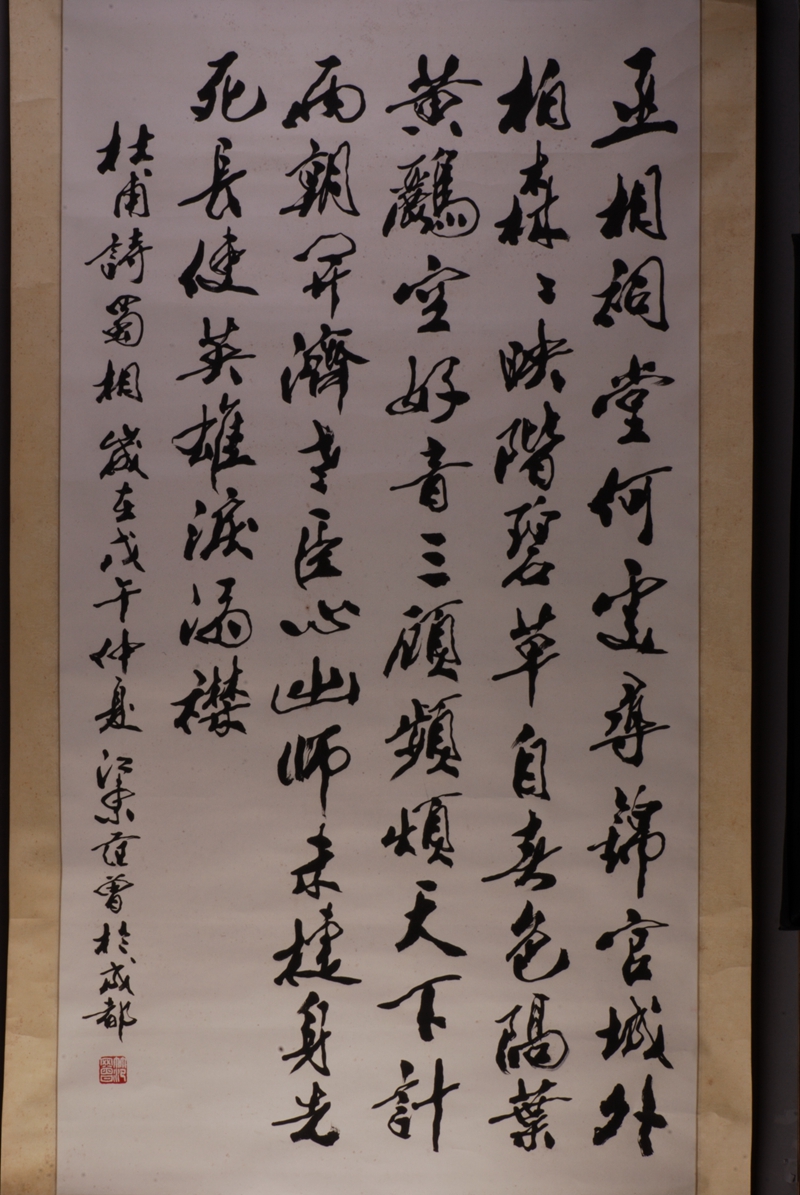 丞相祠堂何處尋錦官城外
柏森々映階碧草自春色隔葉
黄鸝空好音三顧頻煩天下計
兩朝開濟老臣心出師未捷身先
死長使英雄淚滿襟
杜甫詩蜀相歲在戊午仲夏江東范曾於成都